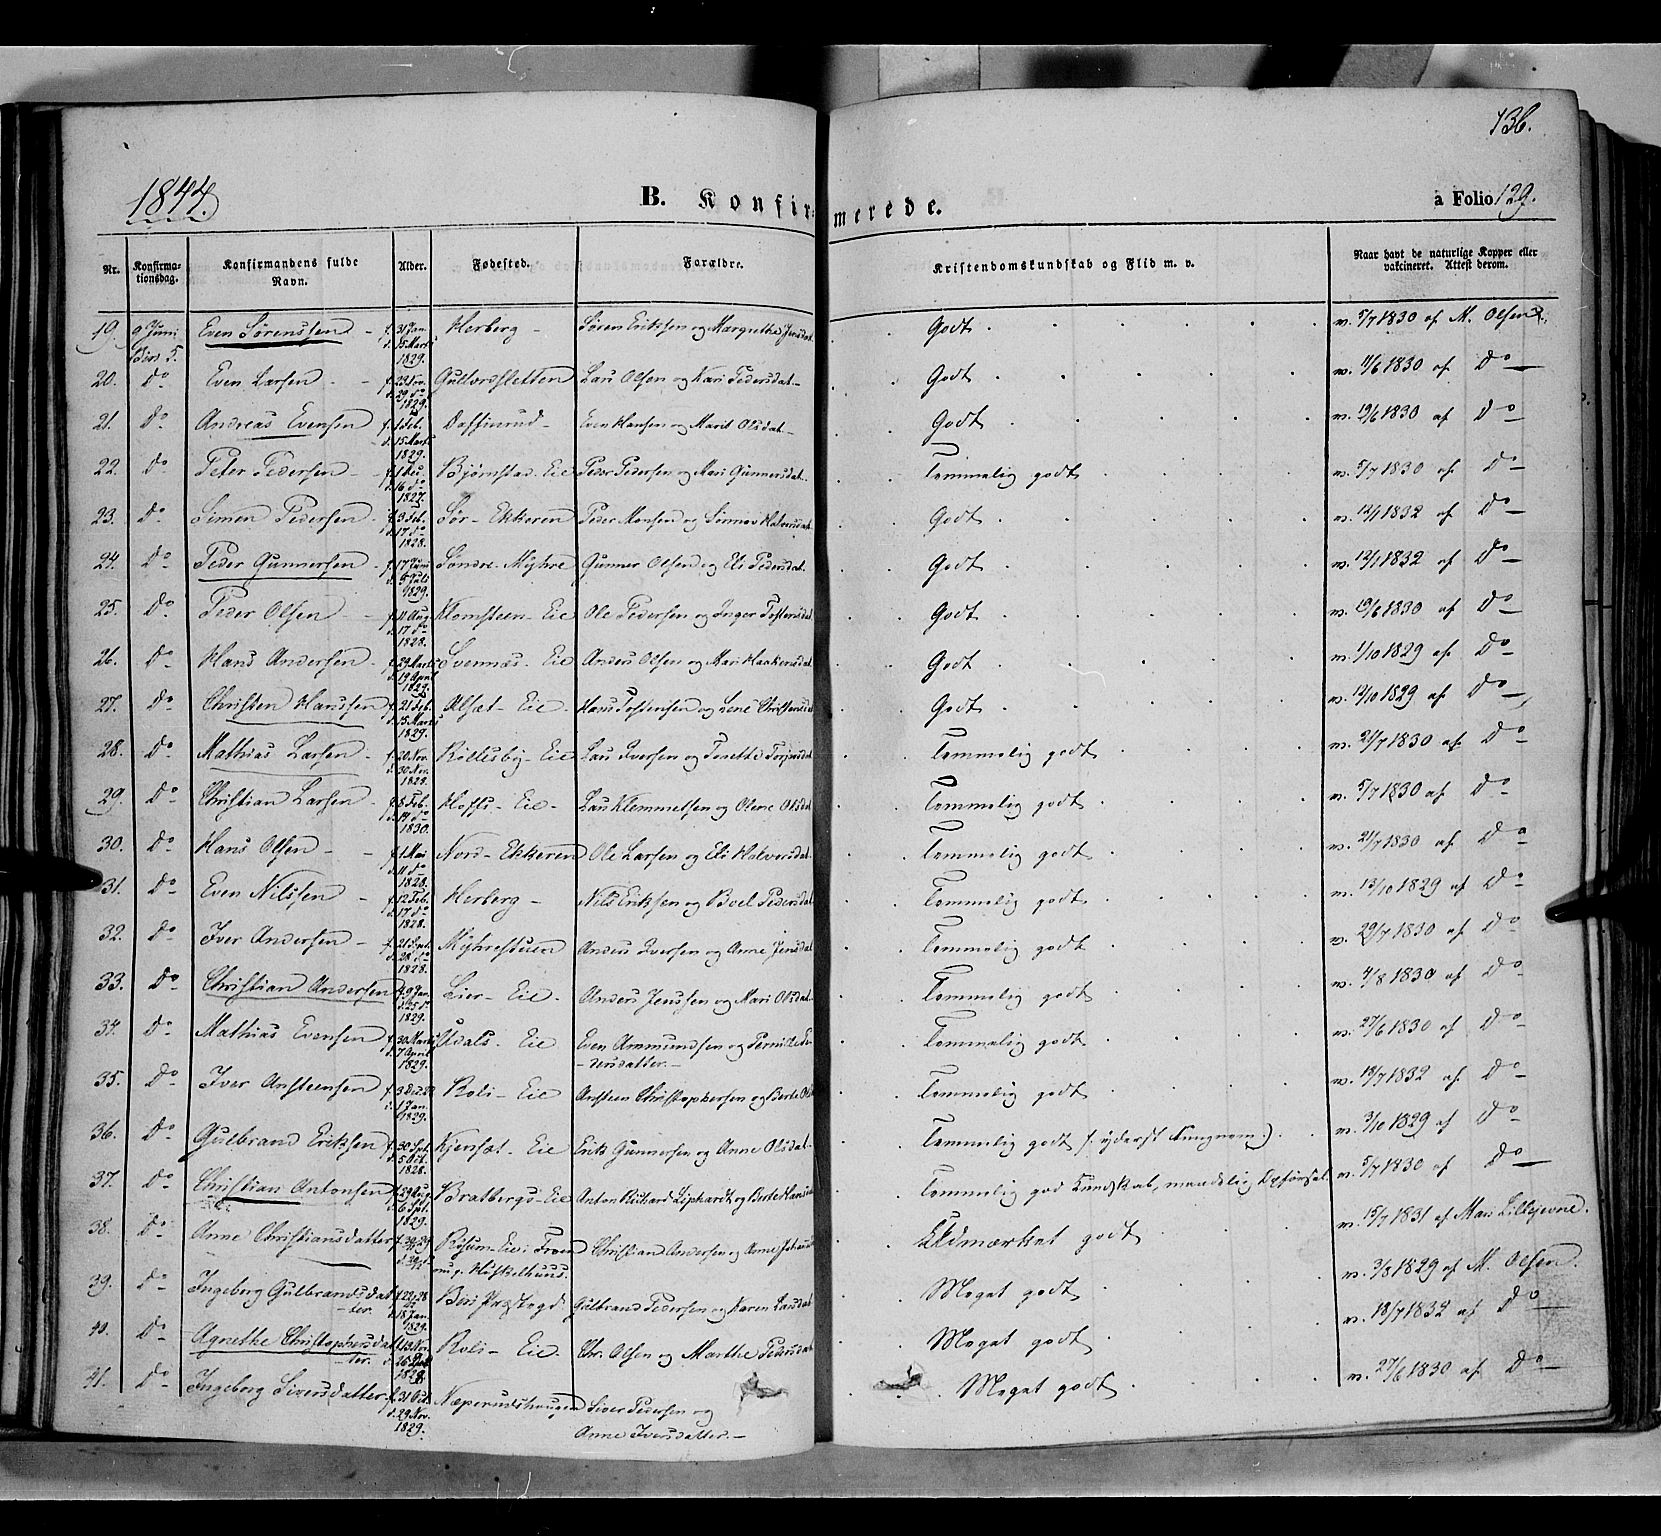 136.
1844.
B. Konfirmerede.
a Folio 129.
Nr. Konfirmationsdag. Konfirmandens fulde Navn. Alder. Fødested. Forældre. Kristendomskundskab og Flid m. v. Naar havt de naturlige Kopper eller vaktineret. Attest derom.
19. 9 Juni Even Sørenssen f. 31 Jan. d. 15 Marts 1829. Herberg Søren Eriksen og Margrethe Jensdat. Godt v. 5/7 1830 af M. Olsen.
20. Do Even Larsen f. 23 Nov. d. 29 do 1829. Lars Olsen og Kari Pedersdat. Godt v. 11/6 1830 af Do
21. Do Andreas Evensen f. 1 Feb. d. 15 Marts 1829. Even Hansen og Marit Olsdat. Godt v. 19/6 1830 af Do
22. Do Peter Pedersen d. 16 do 1827. Bjørnstad-Eie Peder Pedersen og Mari Gunnersdat. Temmelig godt v. 5/7 1830 af Do
23. Do Simen Pedersen f. 3 Feb. d. 17 do 1828. Sør-Ekkeren Peder Monsen og Halvorsdat. Godt v. 12/7 1832 af Do
24. Do Peder Gunnersen f. 17 Juni d. 5 Juli 1829. Søndre-Myhre Gunner Olsen og Eli Pedersdat. Godt v. 12/7 1832 af Do
25. Do Peder Olsen f. 11 Aug. d. 17 do 1828. Klomsteen-Eie Ole Pedersen og Inger Tostensdat. Godt v. 19/6 1830 af Do
26. Do Hans Andersen f. 29 Marts d. 19 April 1829. Svennæs-Eie Anders Olsen og Mari Haakensdat. Godt v. 1/10 1829 af Do
27. Do Christen Hansen f. 21 Feb. d. 15 Marts 1829. Alsæt-Eie Hans Tostensen og Lene Christensdat. Godt v. 12/10 1829 af Do
28. Do Mathias Larsen f. 20 Nov. d. 30 Nov. 1828. Røllesby-Eie Lars Iversen og Torjersdat. Temmelig godt v. 21/7 1830 af Do
29. Do Christian Larsen f. 8 Feb. d. 14 do 1830. Hoffs-Eie Lars Klemmetsen og Olene Olsdat. Temmelig godt v. 5/7 1830 af Do
30. Do Hans Olsen f. 1 Mai d. 11 do 1828. Nord-Ekkeren Ole Larsen og Eli Halvorsdat. Temmelig godt v. 21/7 1830 af Do
31. Do Even Nilssen f. 12 Feb. d. 17 do 1828. Herberg Nils Eriksen og Boel Pedersdat. Temmelig godt v. 13/10 1829 af Do
32. Do Iver Andersen f. 21 Sept. d. 28 do 1828. Myhrestuen Anders Iversen og Anne Jensdat. Temmelig godt v. 29/7 1830 af Do
33. Do Christian Andersen f. 9 Jan. d. 25 do 1829. Lier-Eie Anders Jenssen og Mari Olsdat. Temmelig godt v. 4/8 1830 af Do
34. Do Mathias Evensen f. 30 Marts d. 7 April 1829. Odals-Eie Even Ammundsen og Pernille Pe-
dersdatter. Temmelig godt v. 27/6 1830 af Do
35. Do Iver Ansteensen d. 1 Jan. 1829. Roli-Eie Ansteen Christophersen og Berte Temmelig godt v. 18/7 1832 af Do
36. Do Gulbrand Eriksen f. 30 Sept. d. 5 Oct. 1828. Kjensæt-Eie Erik Gunnersen og Anne Olsdat. Temmelig godt (: yderst tungnem:) v. 3/10 1829 af Do
37. Do Christian Antonsen f. 29 Aug. d. 6 Sept. 1829. Bratbergs-Eie Anton Richard Liphardt og Berte Temmelig god Kundskab, maadelig Opførsel. v. 5/7 1830 af Do
38. Do Anne Christiansdatter Røsum-Eie i Fron
Christian Andersen og Anne Udmærket godt v. 15/7 1831 af Mari
39. Do Ingeborg Gulbrandsdat-
ter. d. 18 Jan. 1829. Biri Præstegd. Gulbrand Pedersen og Karen Larsdat. Meget godt v. 3/8 1829 af M. Olsen.
40. Do Agnethe Christophersdat-
ter. Roli-Eie. Chr. Olsen og Marthe Pedersdat. Meget godt v. 18/7 1832 af Do
41. Do Ingeborg Siversdatter f. 31 Oct. d. 29 Nov. 1829. Næperudshaugen Siver Pedersen og
Anne Iversdatter. Meget godt v. 27/6 1830 af Do